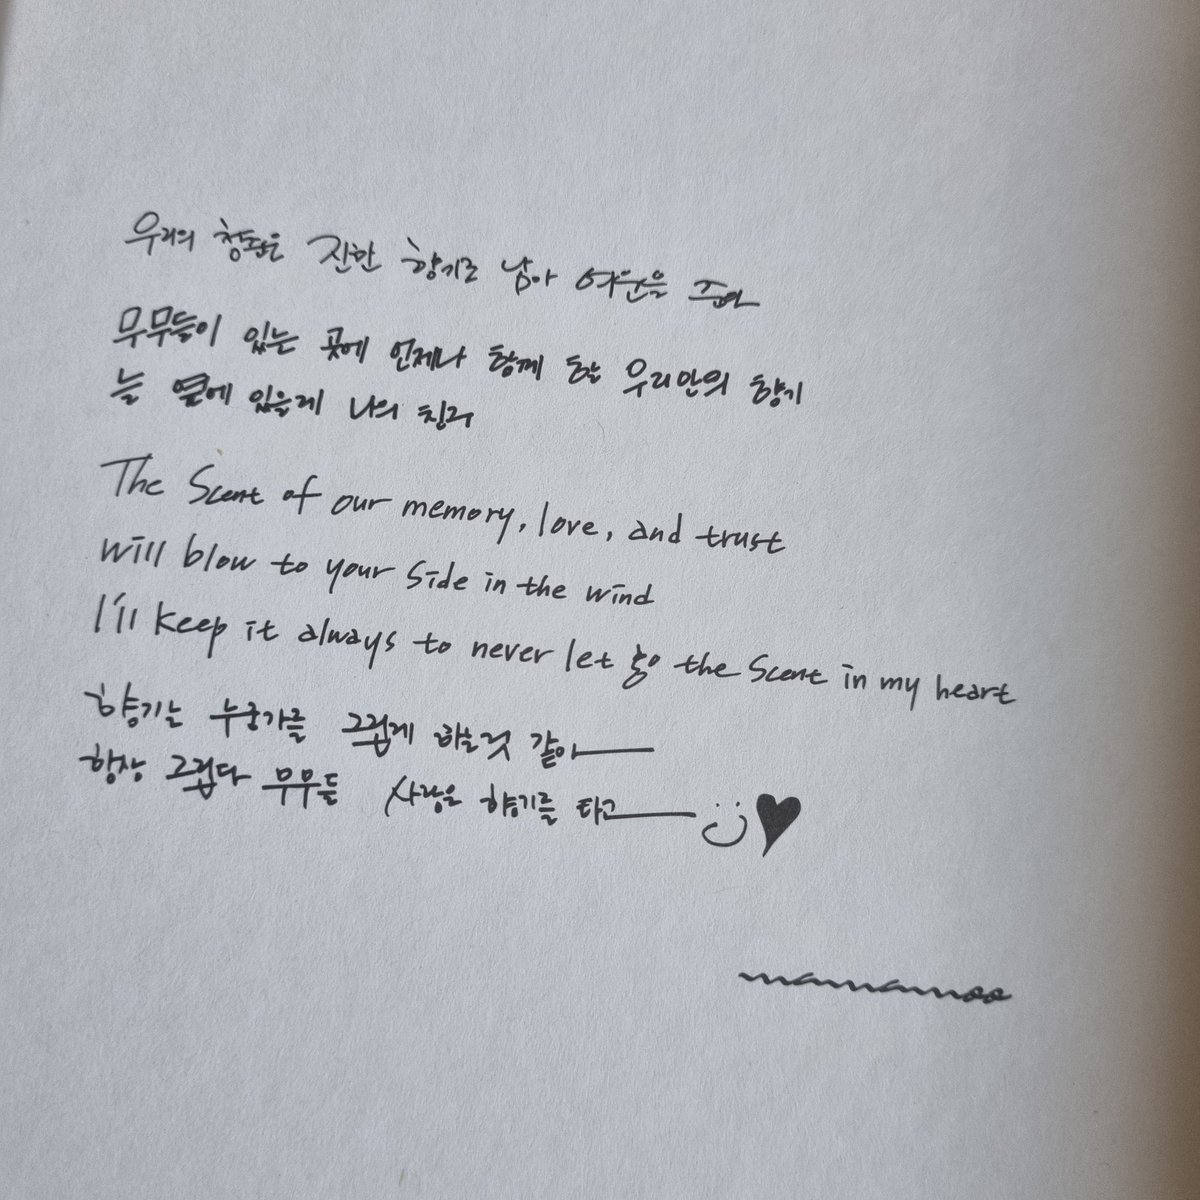 우리의 청춘은 진한 향기로 남아 여운을 준다
무무들이 있는 곳에 언제나 함께 하는 우리만의 향기
늘 옆에 있을게 나의 친구
The Scent of our memory, love, and trust
will blow to your side in the wind
I'll keep it always to never let go the Scent in my heart
향기는 누군가를 그립게 하는것 같아
항상 그립다 무무들 사랑은 향기를 타고 :) ♥
mamamoo